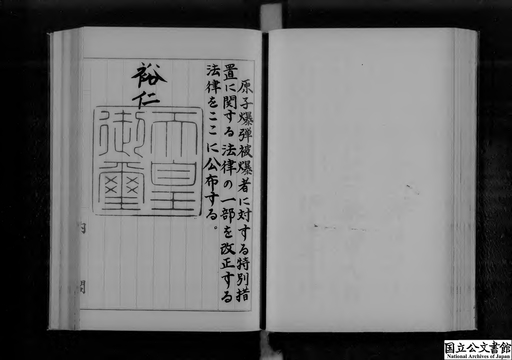 原子爆弾被爆者に対する特別措
置に関する法律の一部を改正する
法律をここに公布する。
裕仁
天皇
御璽
国立公文書館
National Archives of Japan